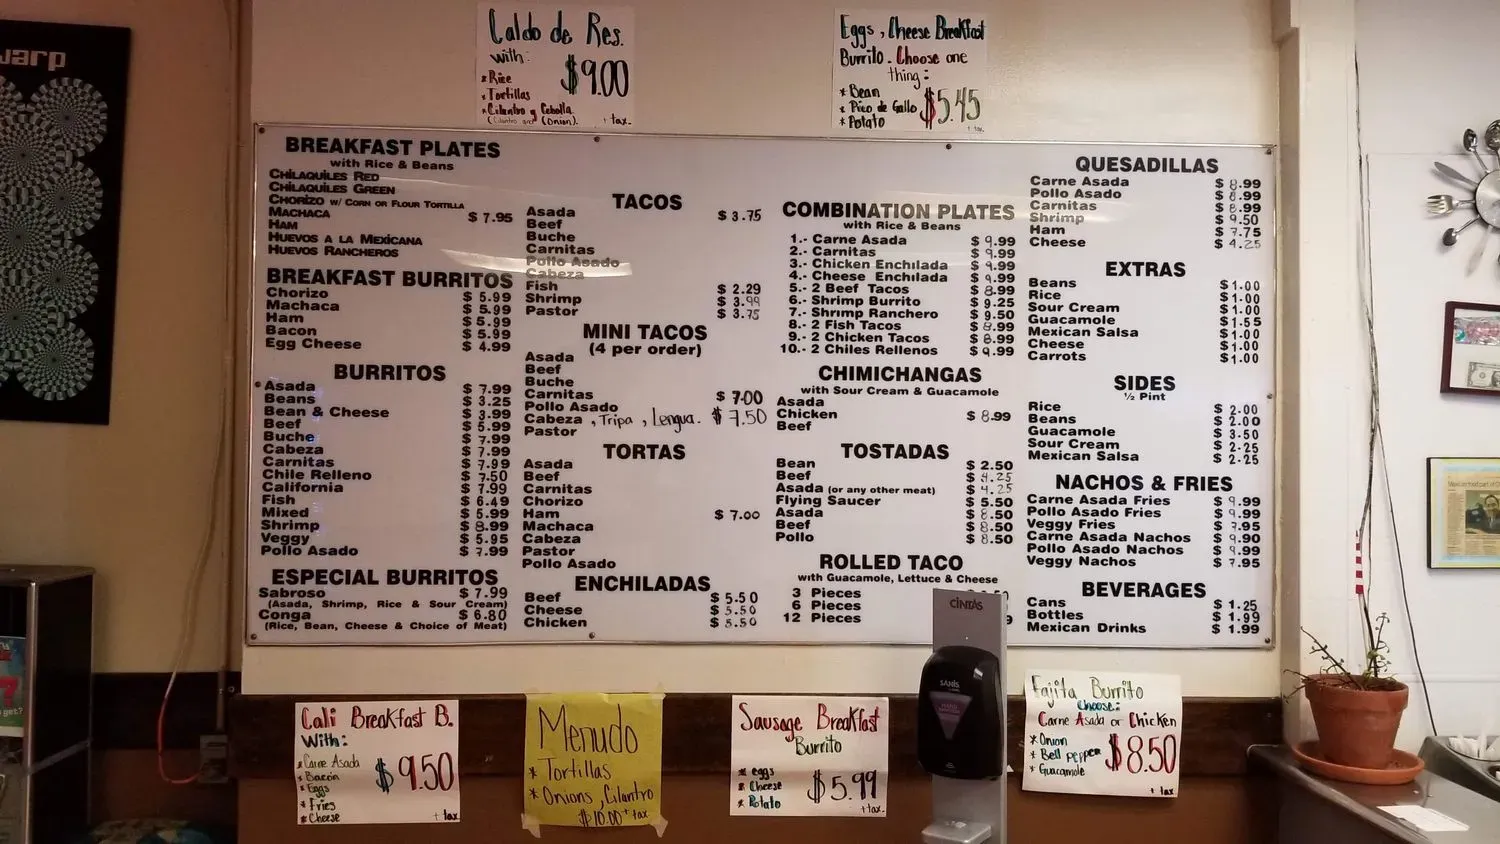 warp
Caldo de Res.
With:
* Rice
* Tortillas
* Cilantro y Cebolla
(Cilantro and Onion).
$9.00
+ tax.
Eggs, Cheese Breakfast
Burrito. Choose one
thing:
* Bean
* Pico de Gallo
* Potato
$5.45
+ tax.
BREAKFAST PLATES
with Rice & Beans
CHILAQUILES RED
CHILAQUILES GREEN
CHORIZO W/ CORN OR FLOUR TORTILLA
MACHACA $ 7.95
HAM
HUEVOS A LA MEXICANA
HUEVOS RANCHEROS
BREAKFAST BURRITOS
Chorizo $ 5.99
Machaca $ 5.99
Ham $ 5.99
Bacon $ 5.99
Egg Cheese $ 4.99
BURRITOS
Asada $ 7.99
Beans $ 3.25
Bean & Cheese $ 3.99
Beef $ 5.99
Buche $ 7.99
Cabeza $ 7.99
Carnitas $ 7.99
Chile Relleno $ 7.50
California $ 7.99
Fish $ 6.49
Mixed $ 5.99
Shrimp $ 8.99
Veggy $ 5.95
Pollo Asado $ 7.99
ESPECIAL BURRITOS
Sabroso $ 7.99
(Asada, Shrimp, Rice & Sour Cream)
Conga $ 6.80
(Rice, Bean, Cheese & Choice of Meat)
TACOS
Asada $ 3.75
Beef
Buche
Carnitas
Pollo Asado
Cabeza
Fish $ 2.29
Shrimp $ 3.99
Pastor $ 3.75
MINI TACOS
(4 per order)
Asada
Beef
Buche
Carnitas $ 7.00
Pollo Asado
Cabeza , Tripa , Lengua. $ 7.50
Pastor
TORTAS
Asada
Beef
Carnitas
Chorizo
Ham $ 7.00
Machaca
Cabeza
Pastor
Pollo Asado
ENCHILADAS
Beef $ 5.50
Cheese $ 5.50
Chicken $ 5.50
COMBINATION PLATES
with Rice & Beans
1.- Carne Asada $ 9.99
2.- Carnitas $ 9.99
3.- Chicken Enchilada $ 9.99
4.- Cheese Enchilada $ 9.99
5.- 2 Beef Tacos $ 8.99
6.- Shrimp Burrito $ 9.25
7.- Shrimp Ranchero $ 9.50
8.- 2 Fish Tacos $ 8.99
9.- 2 Chicken Tacos $ 8.99
10.- 2 Chiles Rellenos $ 9.99
CHIMICHANGAS
with Sour Cream & Guacamole
Asada
Chicken $ 8.99
Beef
TOSTADAS
Bean $ 2.50
Beef $ 4.25
Asada (or any other meat) $ 4.25
Flying Saucer $ 5.50
Asada $ 8.50
Beef $ 8.50
Pollo $ 8.50
ROLLED TACO
with Guacamole, Lettuce & Cheese
3 Pieces
6 Pieces
12 Pieces
QUESADILLAS
Carne Asada $ 8.99
Pollo Asado $ 8.99
Carnitas $ 8.99
Shrimp $ 9.50
Ham $ 7.75
Cheese $ 4.25
EXTRAS
Beans $1.00
Rice $1.00
Sour Cream $1.00
Guacamole $1.55
Mexican Salsa $1.00
Cheese $1.00
Carrots $1.00
SIDES
½ Pint
Rice $ 2.00
Beans $ 2.00
Guacamole $ 3.50
Sour Cream $ 2.25
Mexican Salsa $ 2.25
NACHOS & FRIES
Carne Asada Fries $ 9.99
Pollo Asado Fries $ 9.99
Veggy Fries $ 7.95
Carne Asada Nachos $ 9.90
Pollo Asado Nachos $ 9.99
Veggy Nachos $ 7.95
BEVERAGES
Cans $ 1.25
Bottles $ 1.99
Mexican Drinks $ 1.99
CINTAS
SANIS
Cali Breakfast B.
With:
* Carne Asada
* Bacon
* Eggs
* Fries
* Cheese
$9.50
+ tax
Menudo
* Tortillas
* Onions, Cilantro
$10.00 + tax
Sausage Breakfast
Burrito
* eggs
* Cheese
* Potato
$5.99
+ tax
Fajita Burrito
Choose:
Carne Asada or Chicken
* Onion
* Bell pepper
* Guacamole
$8.50
+ tax